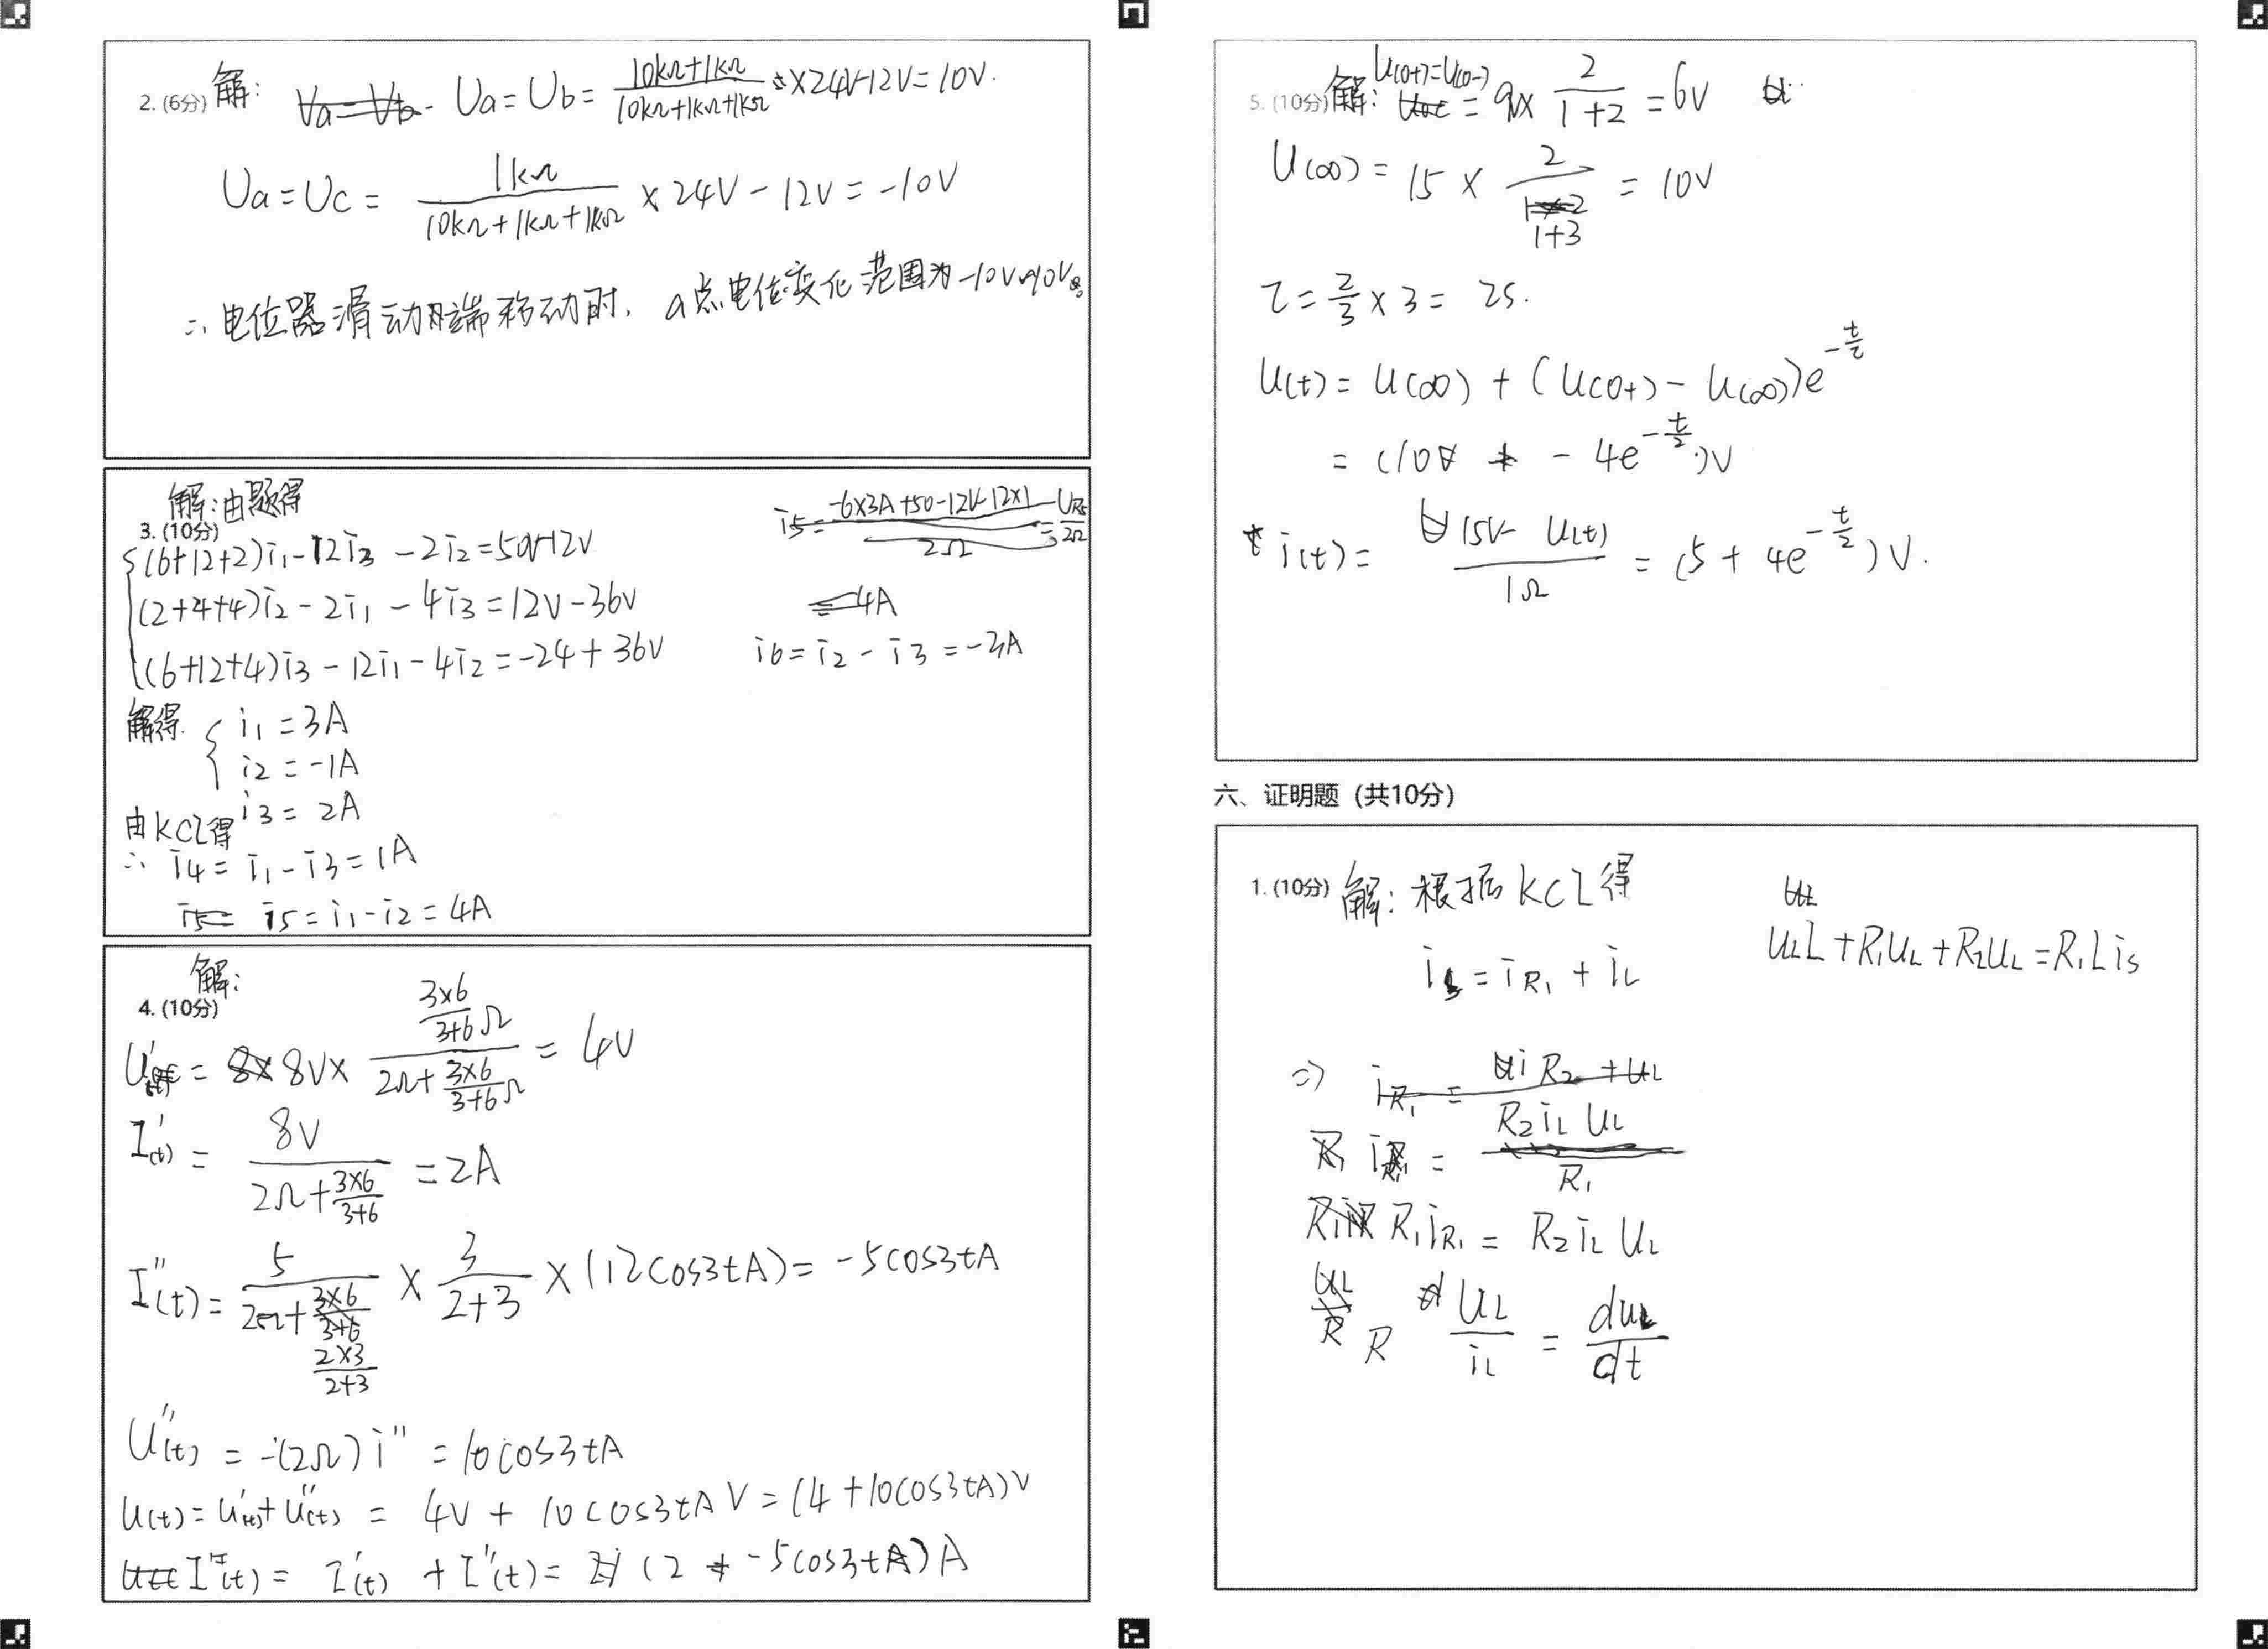 2. (6分) 解: Ua = Ub = (10kΩ+1kΩ)/(10kΩ+1kΩ+1kΩ) × 24V-12V = 10V.
Ua = Uc = 1kΩ/(10kΩ+1kΩ+1kΩ) × 24V - 12V = -10V
∴ 电位器滑动端移动时, a点电位变化范围为-10V~10V。
解:由题得
3. (10分)
(6+12+2)i1 - 12i3 - 2i2 = 50V-12V
(2+4+4)i2 - 2i1 - 4i3 = 12V-36V
(6+12+4)i3 - 12i1 - 4i2 = -24 + 36V
解得 i1 = 3A
i2 = -1A
i3 = 2A
由KCL得
∴ i4 = i1 - i3 = 1A
i5 = i1 - i2 = 4A
i6 = i2 - i3 = -3A
解:
4. (10分)
U'(t) = 8V× (3×6/(3+6) Ω)/(2Ω + 3×6/(3+6) Ω) = 4V
I'(t) = 8V/(2Ω + 3×6/(3+6)) = 2A
I''(t) = 5/(2Ω + 2×3/(2+3)) × 3/(2+3) × (12cos3tA) = -5cos3tA
U''(t) = -(2Ω) i'' = 10cos3tA
U(t) = U'(t) + U''(t) = 4V + 10cos3tA V = (4 + 10cos3tA)V
I(t) = I'(t) + I''(t) = (2 - 5cos3t)A
5. (10分) 解: U(0+)=U(0-) = 9× 2/(1+2) = 6V
U(∞) = 15 × 2/(1+3) = 10V
τ = 2/3 × 3 = 2s.
U(t) = U(∞) + (U(0+) - U(∞))e^(-t/τ)
= (10 - 4e^(-t/2))V
i(t) = (15V - U(t))/1Ω = (5 + 4e^(-t/2))V.
六、证明题（共10分）
1. (10分) 解: 根据KCL得
is = iR1 + iL
⇒
R1iR1 = R2iL UL
R UL/iL = duL/dt
ULL + R1UL + R2UL = R1Lis